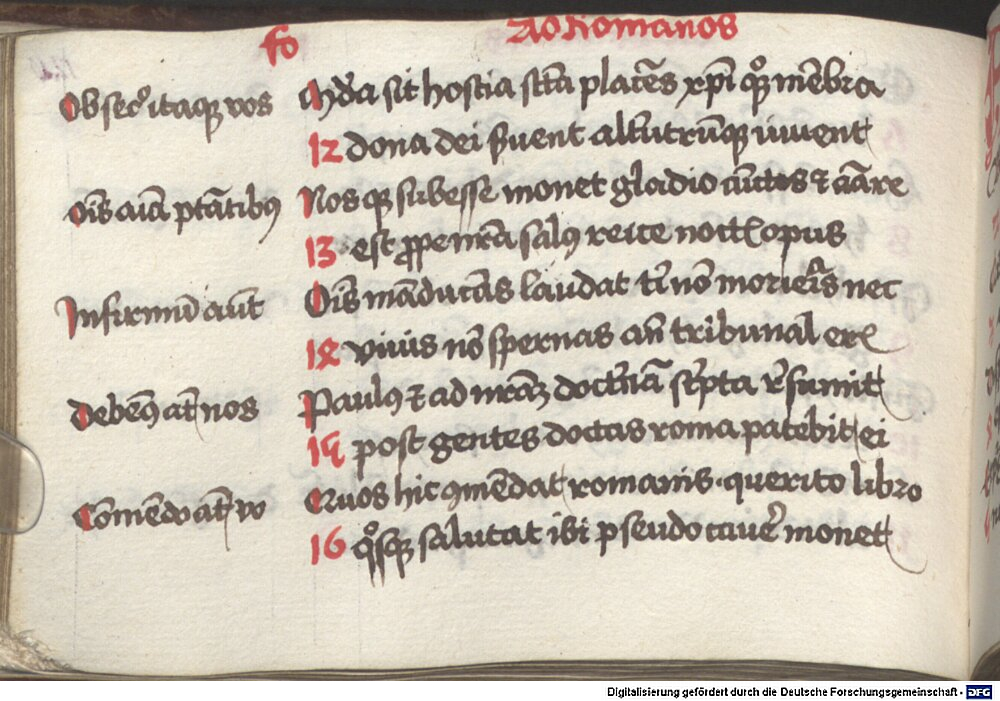 fo Ad Romanos
Obsecͦ itaqꝫ vos sit hostia sctā placēs xp̄i qͦꝝ mēbra
12 dona dei alt̉utrūqꝫ iuvent
Oīs aīa ptātibꝰ Nosqꝫ subesse monet gladio cūctos ⁊ amare
13 est ꝓpe nr̄a salꝰ reice noctꝭ opus
Infirmū aūt Oīs māducās laudat nō nec
14 viuis nō spernas an̄ tribunal erꝭ
Debemꝰ at̄ nos Paulꝰ ⁊ ad nr̄aꝫ doct̉nā sc̉pta
15 post gentes doctas roma patebit ei
Cōmēdo at̄ vo Quos hic ꝯmēdat romanis querito libro
16 qͦsqꝫ salutat ibi pseudo cauē monet
Digitalisierung gefördert durch die Deutsche Forschungsgemeinschaft - DFG